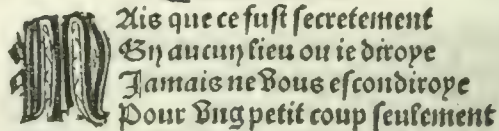 MAis que ce fuſt ſecretement
En aucun lieu ou ie diroye
Jamais ne Vous eſcondiroye
Pour Vng petit coup ſeulement